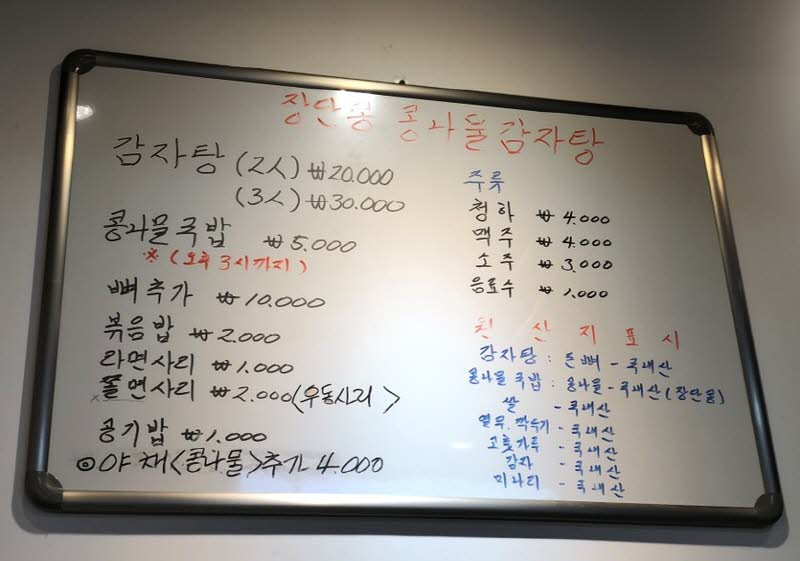 장단콩 콩나물감자탕
감자탕 (2人) ₩20.000
(3人) ₩30.000
콩나물국밥 ₩5.000
※ (오후 3시까지)
뼈추가 ₩10.000
볶음밥 ₩2.000
라면사리 ₩1.000
쫄면사리 ₩2.000(우동사리)
공기밥 ₩1.000
◎야채<콩나물>추가 4.000
주류
청하 ₩4.000
맥주 ₩4.000
소주 ₩3.000
음료수 ₩1.000
원산지표시
감자탕 : 돈뼈 - 국내산
콩나물국밥 : 콩나물 - 국내산(장단콩)
쌀 - 국내산
열무.깍두기 - 국내산
고춧가루 - 국내산
감자 - 국내산
미나리 - 국내산